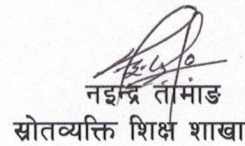 नइन्द्र तामाङ
स्रोतव्यक्ति शिक्ष शाखा